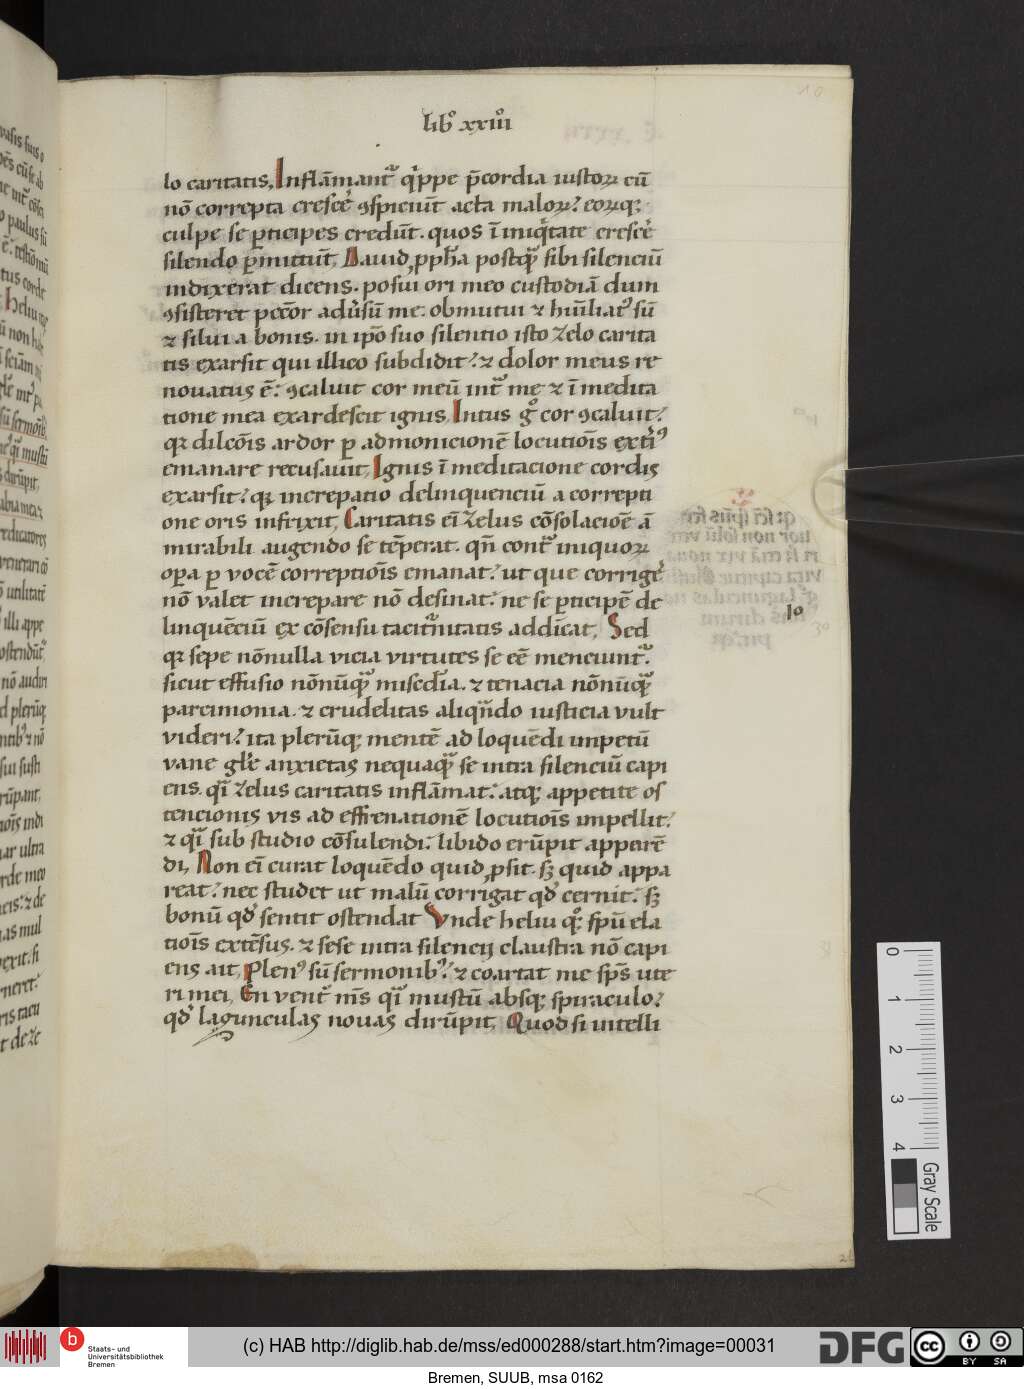 libº xxiiiº
lo caritatis. Inflām̄antᷣ qͥppe p̄cordia iustoꝝ cū
nō correpta crescēˀ ꝯspiciūt acta maloꝝ? eoꝝq;
culpe se ꝑticipes credūt. quos ī iniqͥtate crescēˀ
silendo ꝑmittūt. Dauid ꝓph̄a postqᷓ sibi silenciū
indixerat dicens. posui ori meo custodiā dum
ꝯsisteret pctōr aduˀsū me. obmutui ⁊ hūiliatꝰ sū
⁊ silui a bonis. in ip̄o suo silentio isto zelo carita
tis exarsit qui illico subdidit? ⁊ dolor meus re
nouatus ē: ꝯcaluit cor meū intᷓ me ⁊ ī medita
tione mea exardescit ignis. Intus gͦ cor ꝯcaluit?
qꝛ dilcōis ardor ꝑ admonicionē locutiōis extiˀꝰ
emanare recusauit. Ignis ī meditacione cordis
exarsit? qꝛ increpatio delinquenciū a correpti
one oris infrixit. Caritatis ei̅ zelus cōsolacioē ā
mirabili augendo se tēperat. qn̄ contᷓ iniquoꝝ
oꝑa ꝑ vocē correptiōis emanat? ut que corrigēˀ
nō valet increpare nō desinat? ne se ꝑticipē de
linquēciū ex cōsensu taciturnitatis addicat. Sed
qꝛ sepe nōnulla vicia virtutes se eē menciuntᷣ.
sicut effusio nōnūqᷓ misc̄dia. ⁊ tenacia nōnūqᷓ
parcimonia. ⁊ crudelitas aliqᷓndo iusticia vult
videri? ita plerūq; mentē ad loquēdi impetū
vane gl̄e anxietas nequaqᷓ se intra silenciū capi
ens. qͣi zelus caritatis inflāmat? atq; appetite os
tencionis vis ad effrenationē locutiōis impellit?
⁊ qͣi sub studio cōsulendi? libido erūpit apparē
di. Non ei̅ curat loquēdo quid ꝓsit. sꝫ quid appa
reat? nec studet ut malū corrigat qd̄ cernit? sꝫ
bonū qd̄ sentit ostendat Vnde heliu qͦꝫ spū ela
tiōis extēsus. ⁊ sese intra silencij claustra nō capi
ens ait. Plenꝰ sū sermonibꝰ? ⁊ coartat me sps̄ ute
ri mei. En ventˀ m̄s qͣi mustū absq; spiraculo?
qd̄ lagunculas nouas dirūpit. Quod si uitelli
lo
0
1
2
3
4
Gray Scale
b
Staats- und
Universitätsbibliothek
Bremen
(c) HAB http://diglib.hab.de/mss/ed000288/start.htm?image=00031
DFG
cc
BY SA
Bremen, SUUB, msa 0162